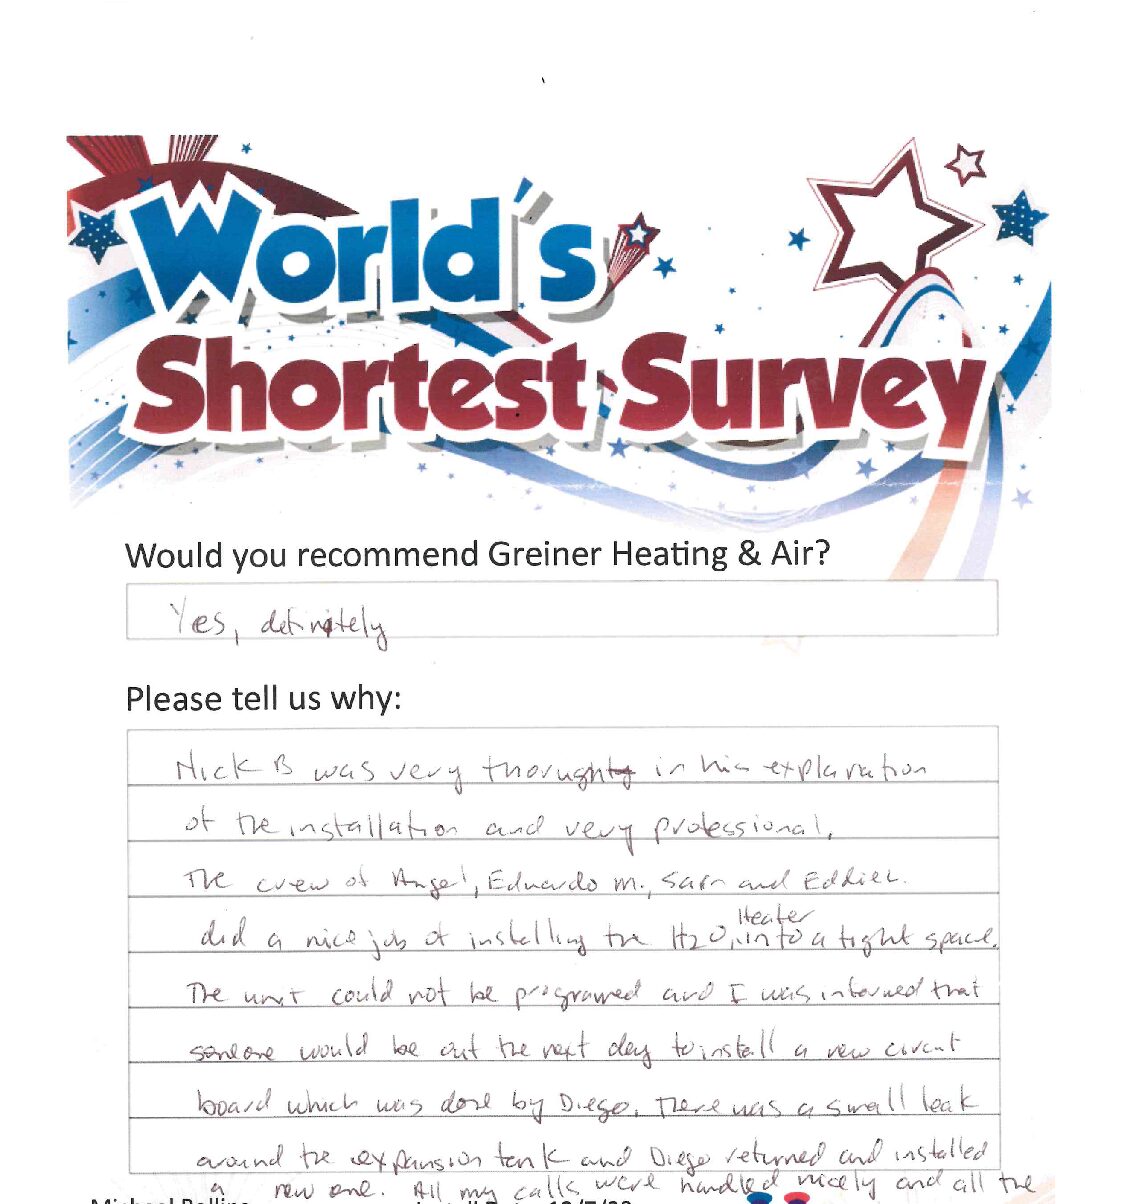 World's
Shortest Survey
Would you recommend Greiner Heating & Air?
Yes, definitely
Please tell us why:
Nick B was very thorough in his explanation
of the installation and very professional.
The crew of Angel, Eduardo M., Sam and Eddie L.
did a nice job of installing the H2O Heater into a tight space.
The unit could not be programed and I was informed that
someone would be out the next day to install a new circuit
board which was done by Diego. There was a small leak
around the expansion tank and Diego returned and installed
a new one. All my calls were handled nicely and all the